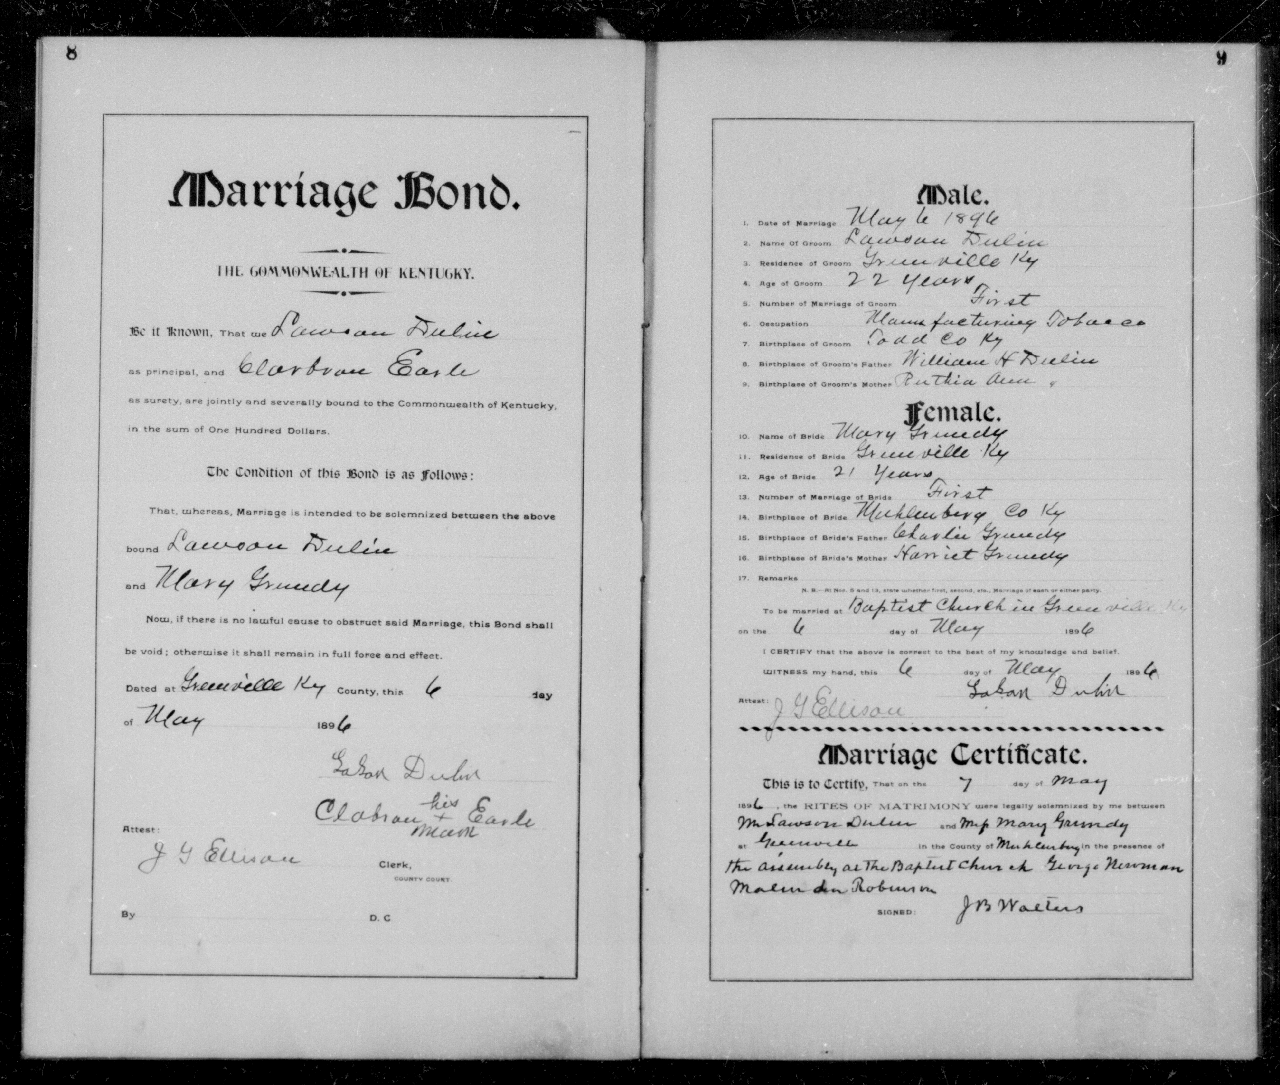 8
Marriage Bond.
THE COMMONWEALTH OF KENTUCKY.
Be it Known, That we Lawson Dulin
as principal, and Clarbron Earle
as surety, are jointly and severally bound to the Commonwealth of Kentucky,
in the sum of One Hundred Dollars.
The Condition of this Bond is as Follows:
That, whereas, Marriage is intended to be solemnized between the above
bound Lawson Dulin
and Mary Grundy
Now, if there is no lawful cause to obstruct said Marriage, this Bond shall
be void; otherwise it shall remain in full force and effect.
Dated at Greenville Ky County, this 6 day
of May 1896
Dulin
Clabran his + mark Earle
Attest:
J G Ellison Clerk,
COUNTY COURT.
By D. C
9
Male.
1. Date of Marriage May 6 1896
2. Name Of Groom Lawson Dulin
3. Residence of Groom Greenville Ky
4. Age of Groom 22 years
5. Number of Marriage of Groom First
6. Occupation Manufacturing Tobacco
7. Birthplace of Groom Todd Co Ky
8. Birthplace of Groom's Father William H Dulin
9. Birthplace of Groom's Mother Ruthia Ann "
Female.
10. Name of Bride Mary Grundy
11. Residence of Bride Greenville Ky
12. Age of Bride 21 Years
13. Number of Marriage of Bride First
14. Birthplace of Bride Muhlenberg Co Ky
15. Birthplace of Bride's Father Charlie Grundy
16. Birthplace of Bride's Mother Harriet Grundy
17. Remarks
N. B.—At Nos. 5 and 13, state whether first, second, etc., Marriage of each or either party.
To be married at Baptist Church in Greenville Ky
on the 6 day of May 1896
I CERTIFY that the above is correct to the best of my knowledge and belief.
WITNESS my hand, this 6 day of May 1896
Dulin
Attest: J G Ellison
Marriage Certificate.
This is to Certify, That on the 7 day of May
1896, the RITES OF MATRIMONY were legally solemnized by me between
Mr Lawson Dulin and Miss Mary Grundy
at Greenville in the County of Muhlenberg in the presence of
the assembly at the Baptist Church George Newman
Malinda Robinson
SIGNED: J B Walters